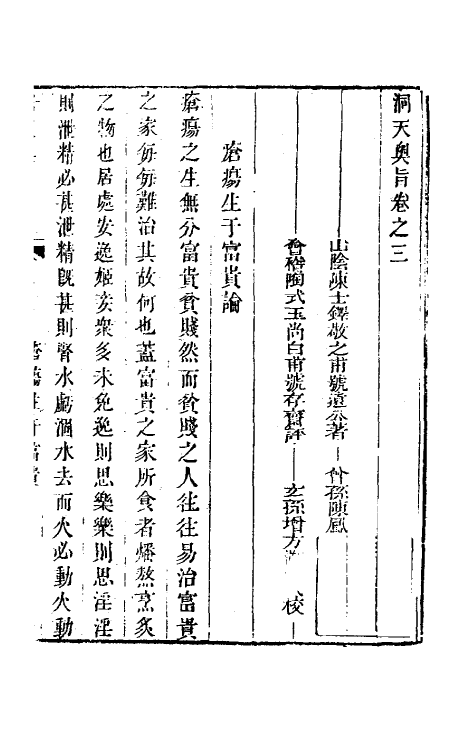 洞天奧旨卷之三
山陰陳士鐸敬之甫號遠公著 曾孫陳鳳
會稽陶式玉尚白甫號存齋評 玄孫增方 校
瘡瘍生于富貴論
瘡瘍之生無分富貴貧賤然而貧賤之人往往易治富貴
之家每每難治其故何也蓋富貴之家所食者燔熬烹炙
之物也居處安逸姬妾衆多未免逸則思樂樂則思淫淫
則泄精必甚泄精旣甚則腎水虧涸水去而火必動火動